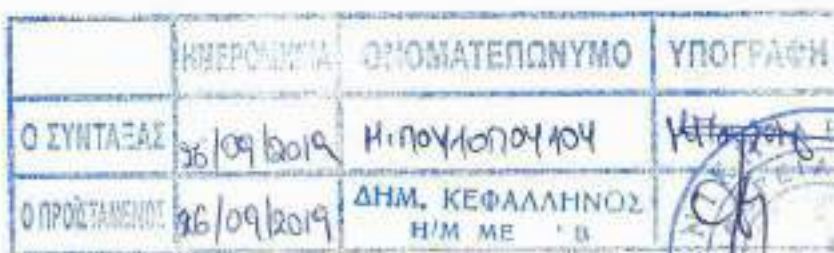 ΗΜΕΡΟΜΗΝΙΑ ΟΝΟΜΑΤΕΠΩΝΥΜΟ ΥΠΟΓΡΑΦΗ
Ο ΣΥΝΤΑΞΑΣ 26/09/2019
Ο ΠΡΟΪΣΤΑΜΕΝΟΣ 26/09/2019 ΔΗΜ. ΚΕΦΑΛΛΗΝΟΣ
Η/Μ ΜΕ Β